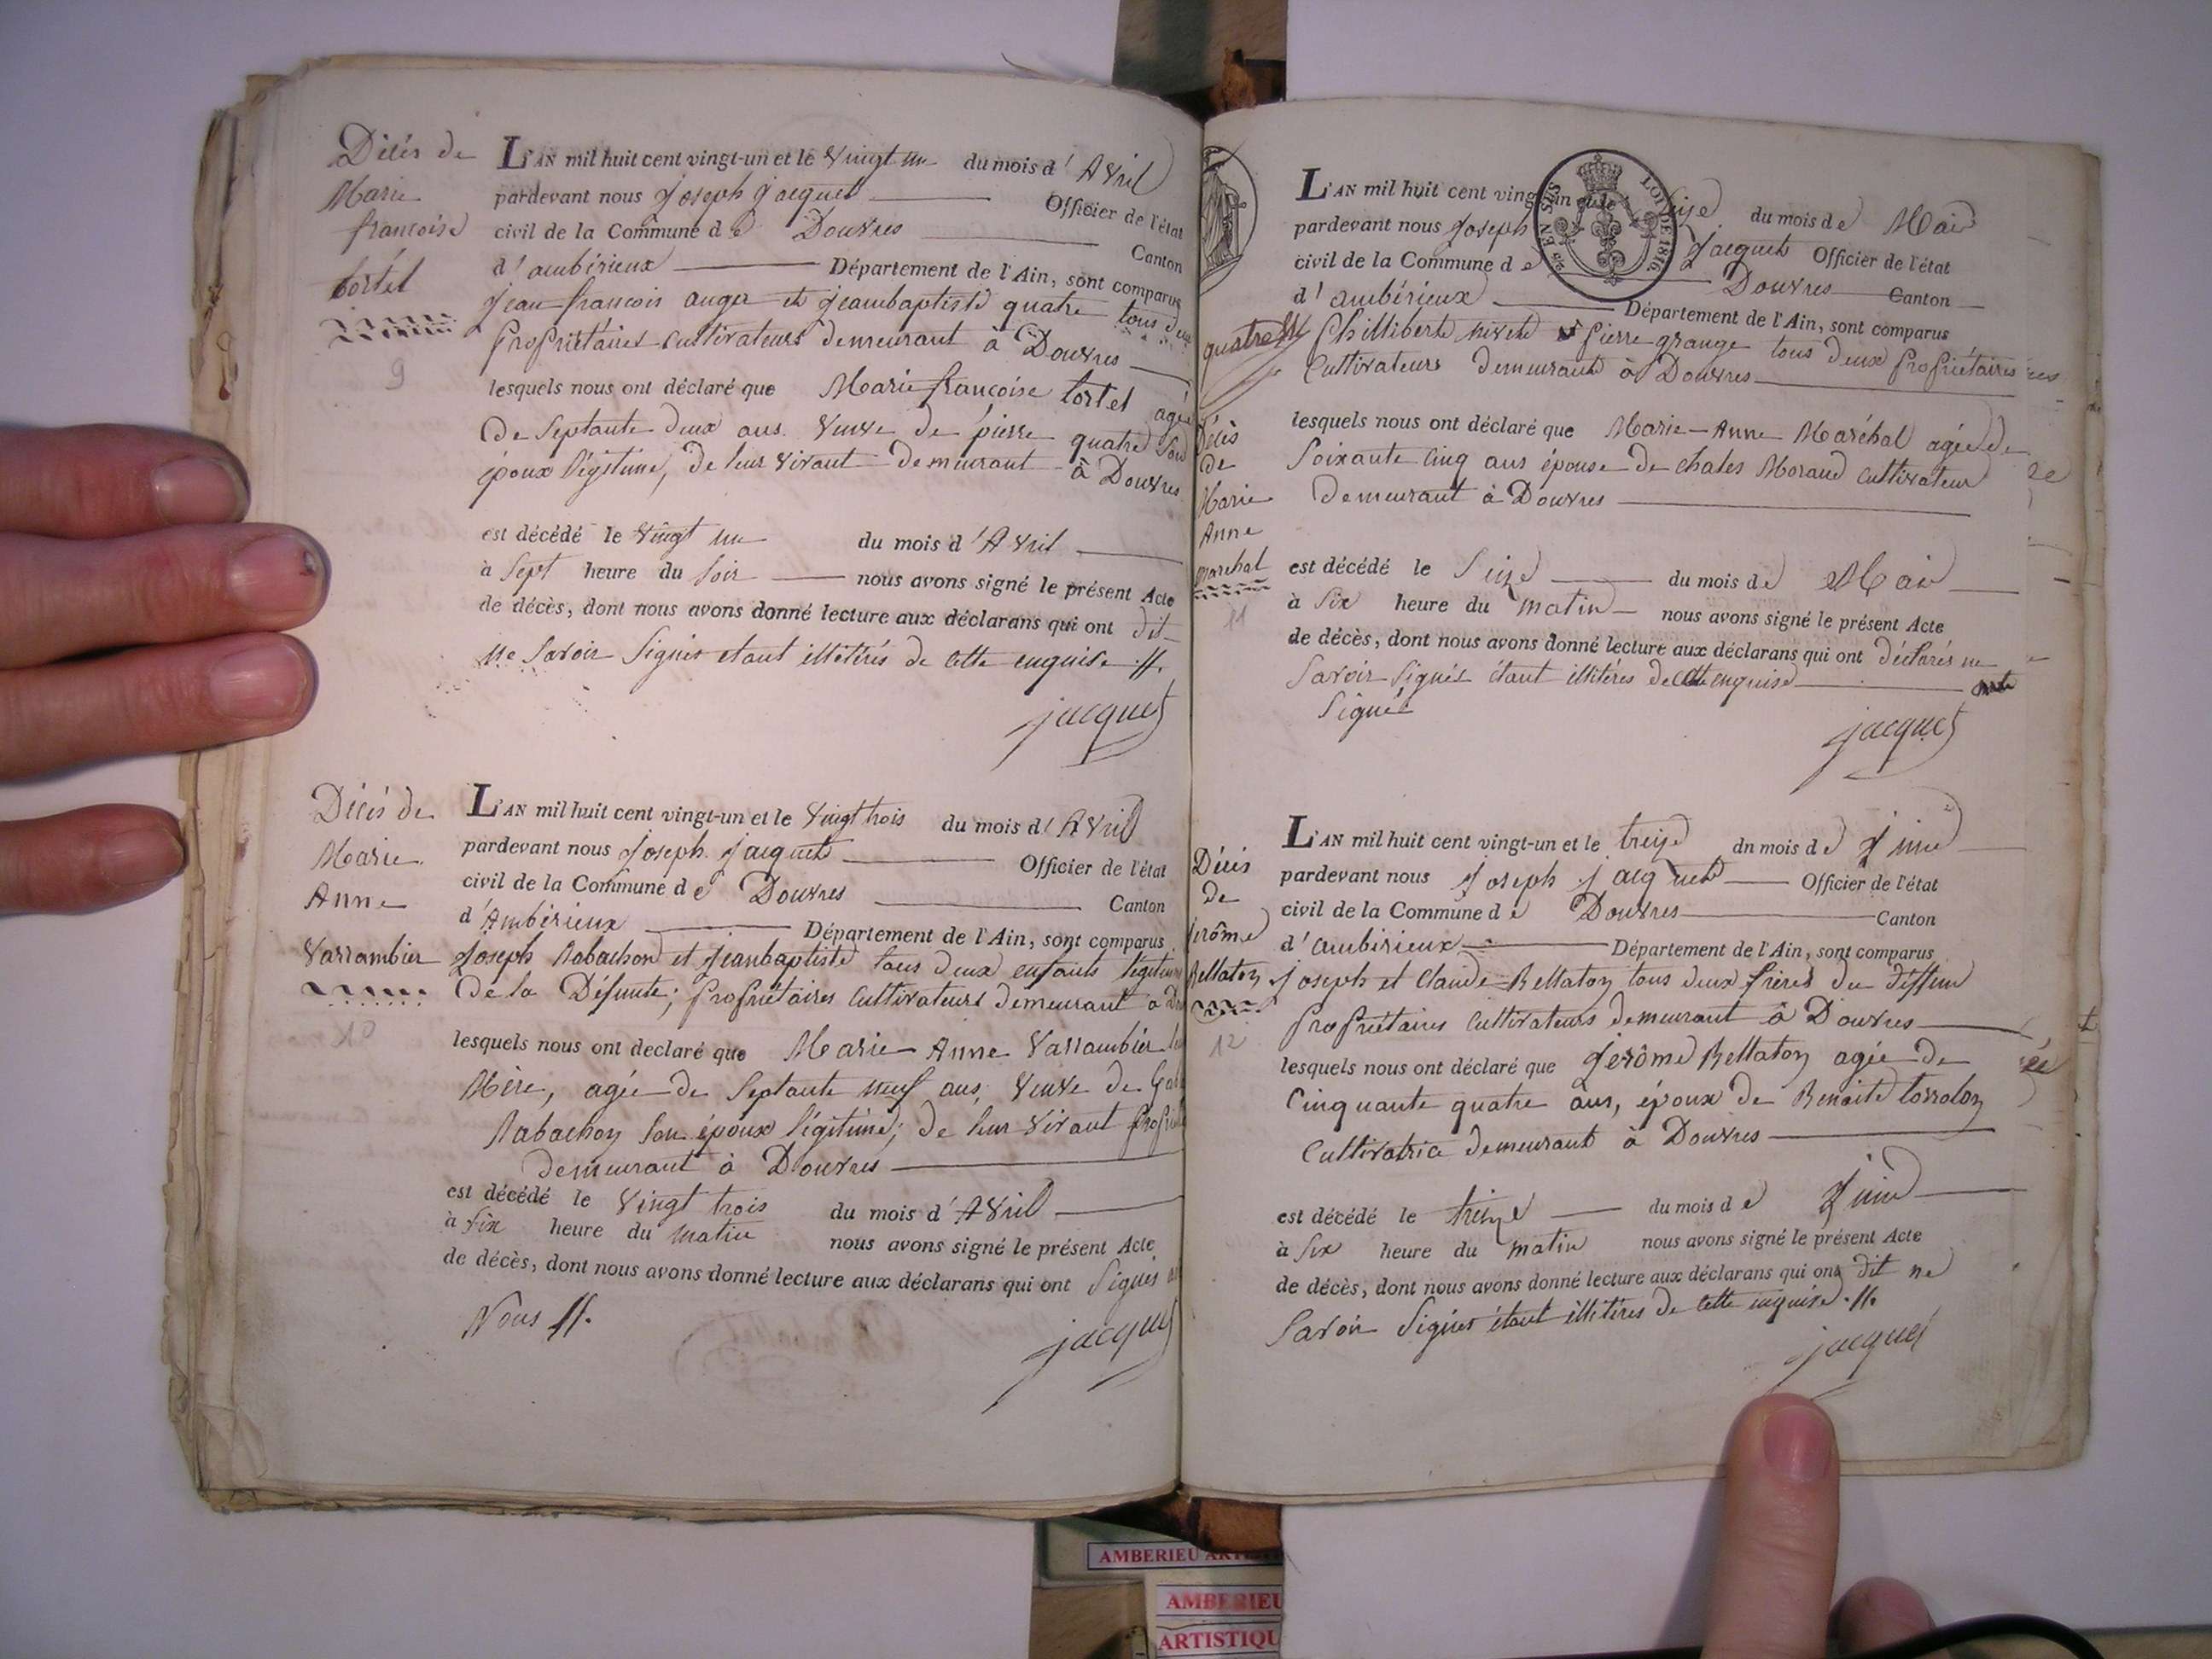 Décès de
Marie
françoise
tortel
9
L'AN mil huit cent vingt-un et le Vingt un du mois d' Avril
pardevant nous Joseph Jacquet Officier de l'état
civil de la Commune de Douvres Canton
d'ambérieux Département de l'Ain, sont comparus
Jean françois auger et Jeanbaptiste quatre tous deux
Propriétaires Cultivateurs demeurant à Douvres
lesquels nous ont déclaré que Marie françoise tortel agée
De Septante deux ans Veuve de pierre quatre son
époux légitime, de leur vivant demeurant à Douvres
est décédé le Vingt un du mois d'Avril
à Sept heure du Soir nous avons signé le présent Acte
de décès, dont nous avons donné lecture aux déclarans qui ont dit
ne Savoir Signés etant illétérés de cette enquise //.
Jacquet
Décés de
Marie
Anne
Varrambier
10
L'AN mil huit cent vingt-un et le Vingt trois du mois d'Avril
pardevant nous Joseph Jacquet Officier de l'état
civil de la Commune de Douvres Canton
d'Ambérieux Département de l'Ain, sont comparus
Joseph Rabachon et Jeanbaptiste tous deux enfants légitimes
De la Défunte; Propriétaires Cultivateurs demeurant à
lesquels nous ont declaré que Marie Anne Varrambier
Mère, agée de Septante neuf ans, Veuve de
Rabachon Son époux légitime; de leur vivant
demeurant à Douvres
est décédé le Vingt trois du mois d'Avril
à Six heure du matin nous avons signé le présent Acte
de décès, dont nous avons donné lecture aux déclarans qui ont Signés
Nous //.
Jacquet
quatre
Décès
de
Marie
Anne
marechal
11
EN SUS
LOI DE 1816.
L'AN mil huit cent vingt-un et le Seize du mois de Mai
pardevant nous Joseph Jacquet Officier de l'état
civil de la Commune de Douvres Canton
d'ambérieux Département de l'Ain, sont comparus
Philliberte nivet et Pierre grange tous deux Propriétaires
Cultivateurs demeurant à Douvres
lesquels nous ont déclaré que Marie-Anne Maréhal agée de
Soixante Cinq ans épouse de Chales Moraud Cultivateur
demeurant à Douvres
est décédé le Seize du mois de Mai
à Six heure du matin nous avons signé le présent Acte
de décès, dont nous avons donné lecture aux déclarans qui ont déclarés ne
Savoir Signés étant illitéres de cette enquise
Signée
Jacquet
Décès
de
Jérôme
Bellaton
12
L'AN mil huit cent vingt-un et le treize dn mois de Juin
pardevant nous Joseph Jacquet Officier de l'état
civil de la Commune de Douvres Canton
d'ambérieux Département de l'Ain, sont comparus
Joseph et Claude Bellaton tous deux frères du déffun
Propriétaires Cultivateurs demeurant à Douvres
lesquels nous ont déclaré que Jerôme Bellaton agée de
Cinquante quatre ans, époux de Benoite
Cultivatrice demeurant à Douvres
est décédé le treize du mois de Juin
à Six heure du matin nous avons signé le présent Acte
de décès, dont nous avons donné lecture aux déclarans qui ont dit ne
Savoir Signés étant illitéres de cette enquise //.
Jacquet
AMBERIEU
AMBERIEU
ARTISTIQU